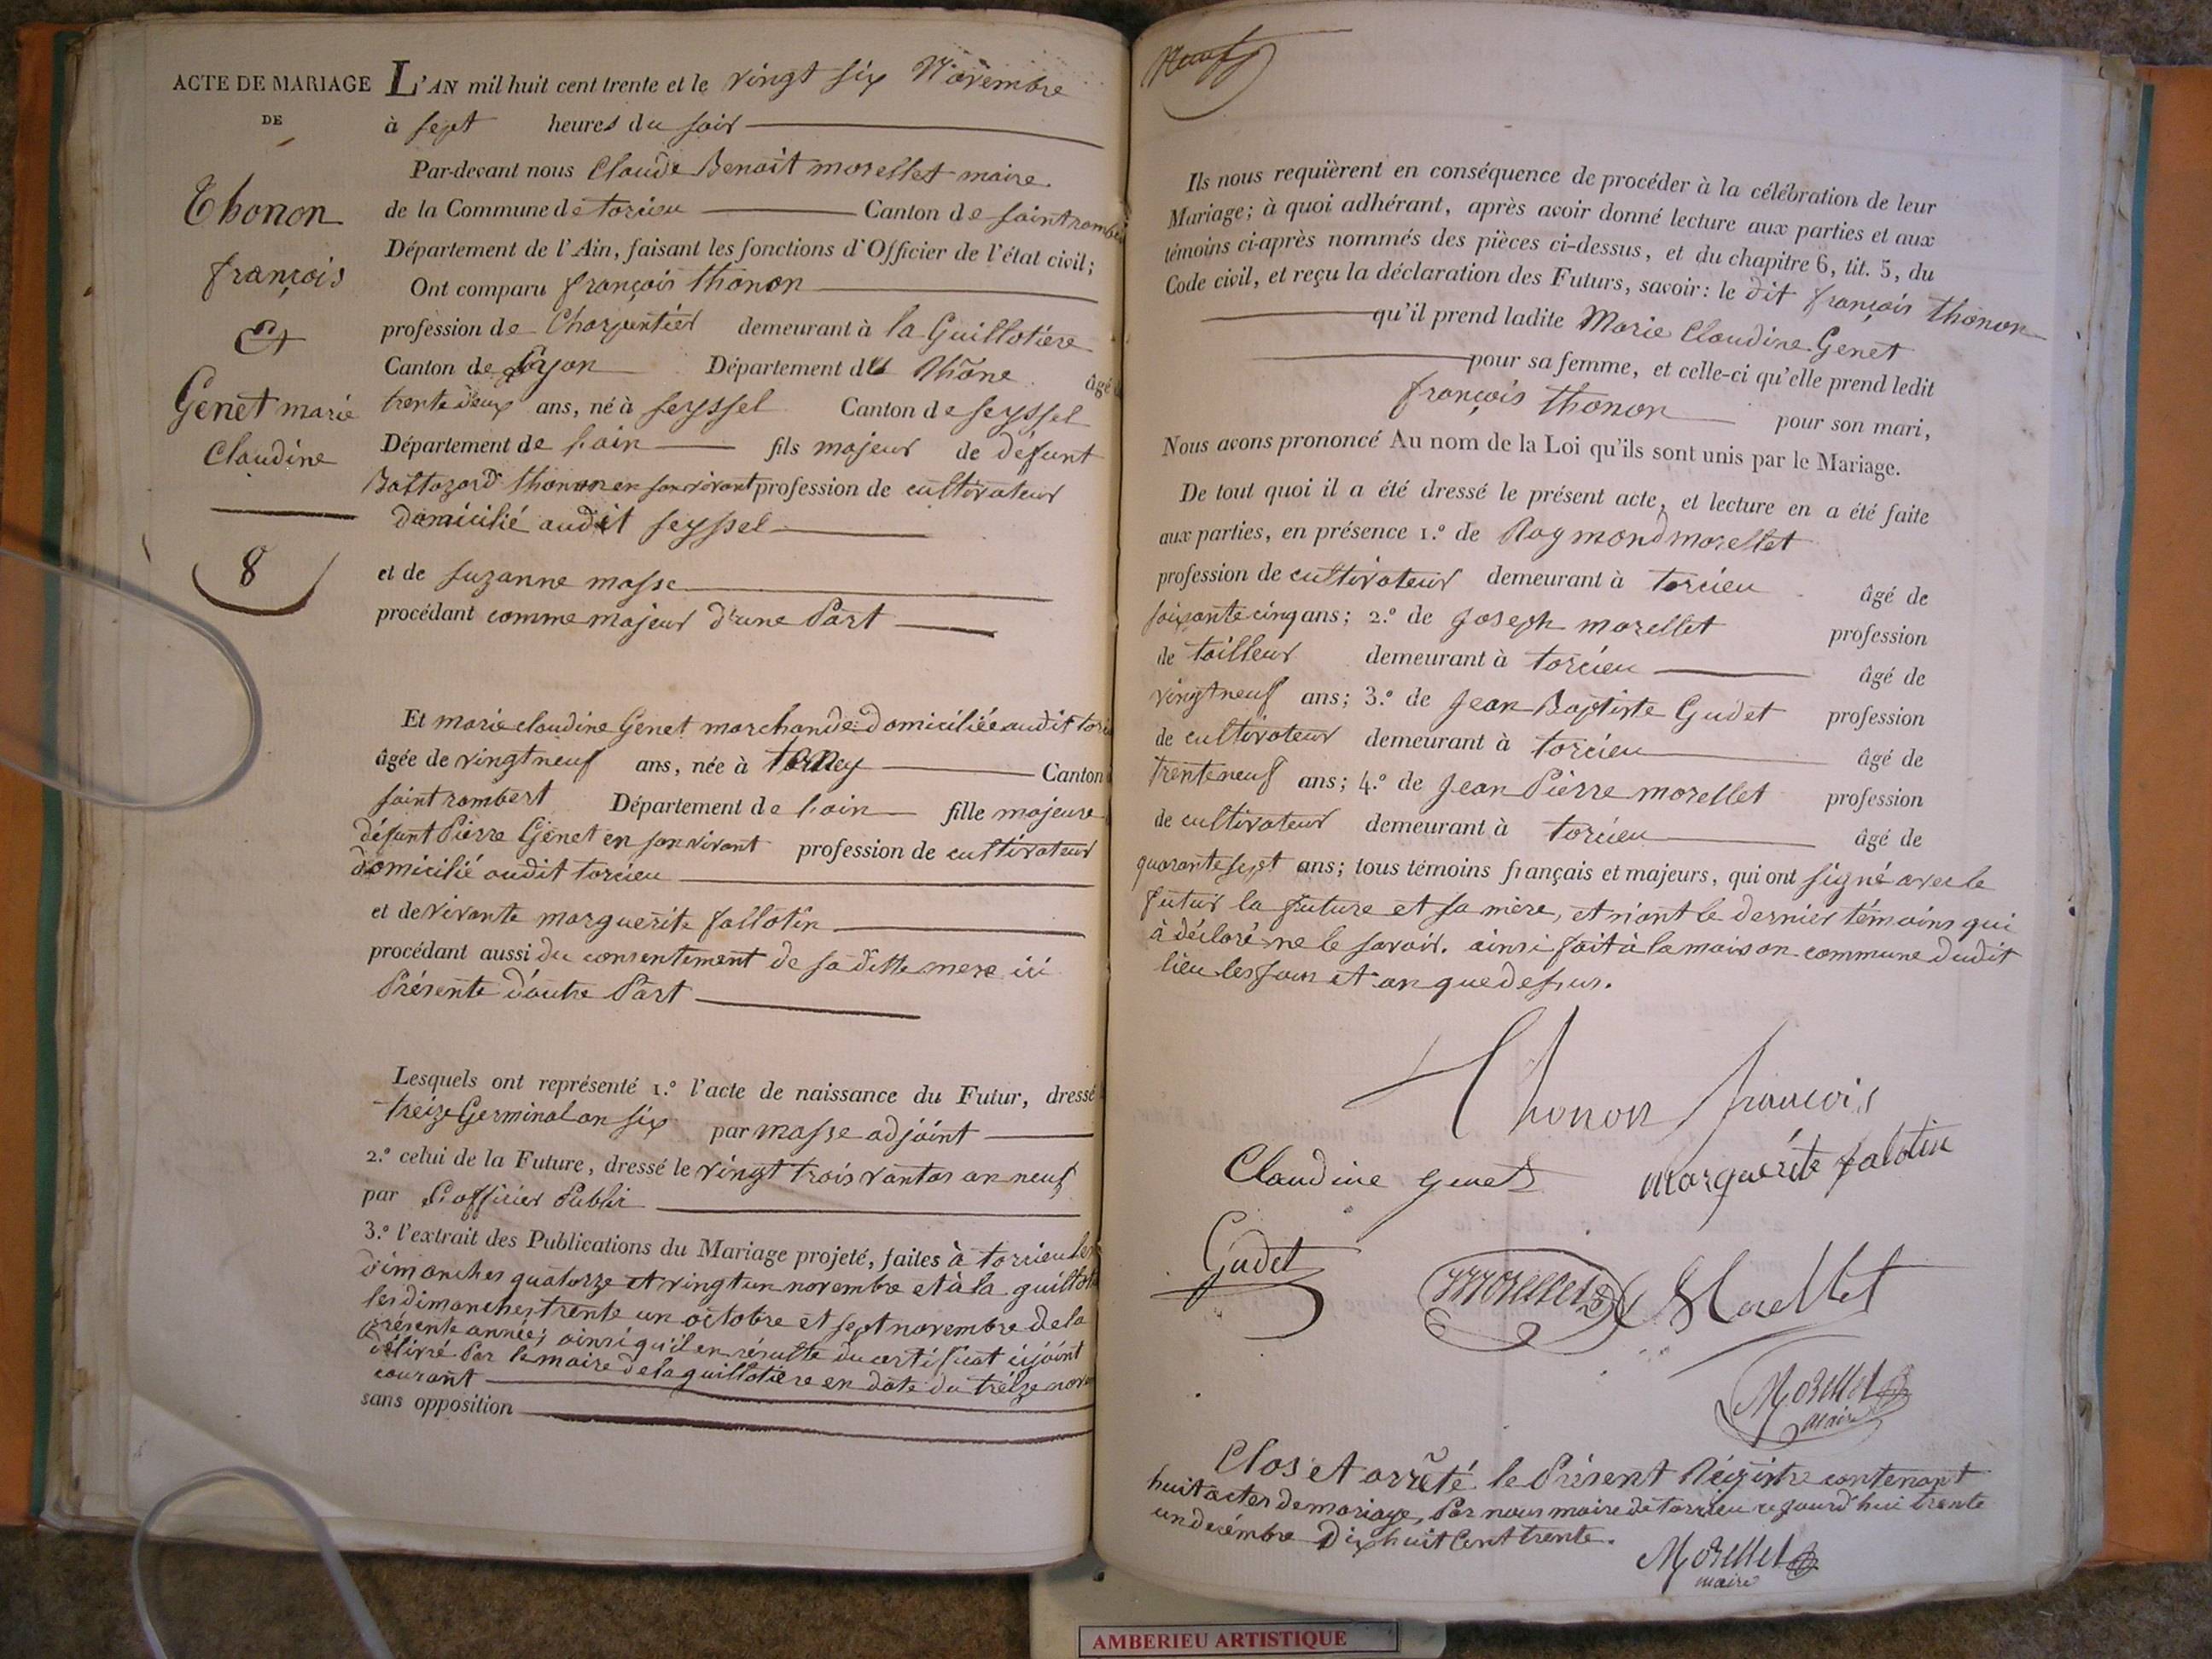 ACTE DE MARIAGE
DE
Thonon
françois
&
Genet marie
Claudine
8
L'AN mil huit cent trente et le vingt six Novembre
à sept heures du soir
Par-devant nous Claude Benoit morellet maire
de la Commune de torcieu Canton de saint rambe
Département de l'Ain, faisant les fonctions d'Officier de l'état civil;
Ont comparu françois thonon
profession de Charpentier demeurant à la Guillotière
Canton de Lyon Département du Rhône âgé
trente deux ans, né à seyssel Canton de seyssel
Département de l'ain fils majeur de défunt
Baltazard thonon en son vivant profession de cultivateur
domicilié audit seyssel
et de suzanne masse
procédant comme majeur d'une Part
Et marie claudine Genet marchande domiciliée audit
âgée de vingt neuf ans, née à Canton
saint rambert Département de l'ain fille majeure
défunt Pierre Genet en son vivant profession de cultivateur
domicilié audit torcieu
et de vivante marguerite fallotin
procédant aussi du consentement de sa ditte mere ici
Présente d'autre Part
Lesquels ont représenté 1.º l'acte de naissance du Futur, dressé
treize Germinal an six par masse adjoint
2.º celui de la Future, dressé le vingt trois vantos an neuf
par l'officier Public
3.º l'extrait des Publications du Mariage projeté, faites à torcieu les
dimanches quatorze et vingt un novembre et à la guillot
les dimanches trente un octobre et sept novembre de la
présente année; ainsi qu'il en résulte du certificat ci joint
délivré Par le maire de la guillotière en date du treize nov
courant
sans opposition
Ils nous requièrent en conséquence de procéder à la célébration de leur
Mariage; à quoi adhérant, après avoir donné lecture aux parties et aux
témoins ci-après nommés des pièces ci-dessus, et du chapitre 6, tit. 5, du
Code civil, et reçu la déclaration des Futurs, savoir: le dit françois thonon
qu'il prend ladite Marie Claudine Genet
pour sa femme, et celle-ci qu'elle prend ledit
françois thonon pour son mari,
Nous avons prononcé Au nom de la Loi qu'ils sont unis par le Mariage.
De tout quoi il a été dressé le présent acte, et lecture en a été faite
aux parties, en présence 1.º de Raymond morellet
profession de cultivateur demeurant à torcieu âgé de
soixante cinq ans; 2.º de joseph morellet profession
de tailleur demeurant à torcieu âgé de
vingt neuf ans; 3.º de jean Baptiste Gudet profession
de cultivateur demeurant à torcieu âgé de
trente neuf ans; 4.º de jean Pierre morellet profession
de cultivateur demeurant à torcieu âgé de
quarante sept ans; tous témoins français et majeurs, qui ont signé avec le
futur la future et sa mère, et n'ont le dernier témoins qui
à déclaré ne le savoir. ainsi fait à la maison commune dudit
lieu les jour et an que dessus.
Thonon francois
Claudine genet marguerite falotin
Gudet morellet Morellet
Morellet
maire
Clos et arrêté le Présent Régistre contenant
huit actes de mariage, Par nous maire de torcieu cejourd'hui trente
un decémbre Dix huit Cent trente.
Morellet
maire
AMBERIEU ARTISTIQUE